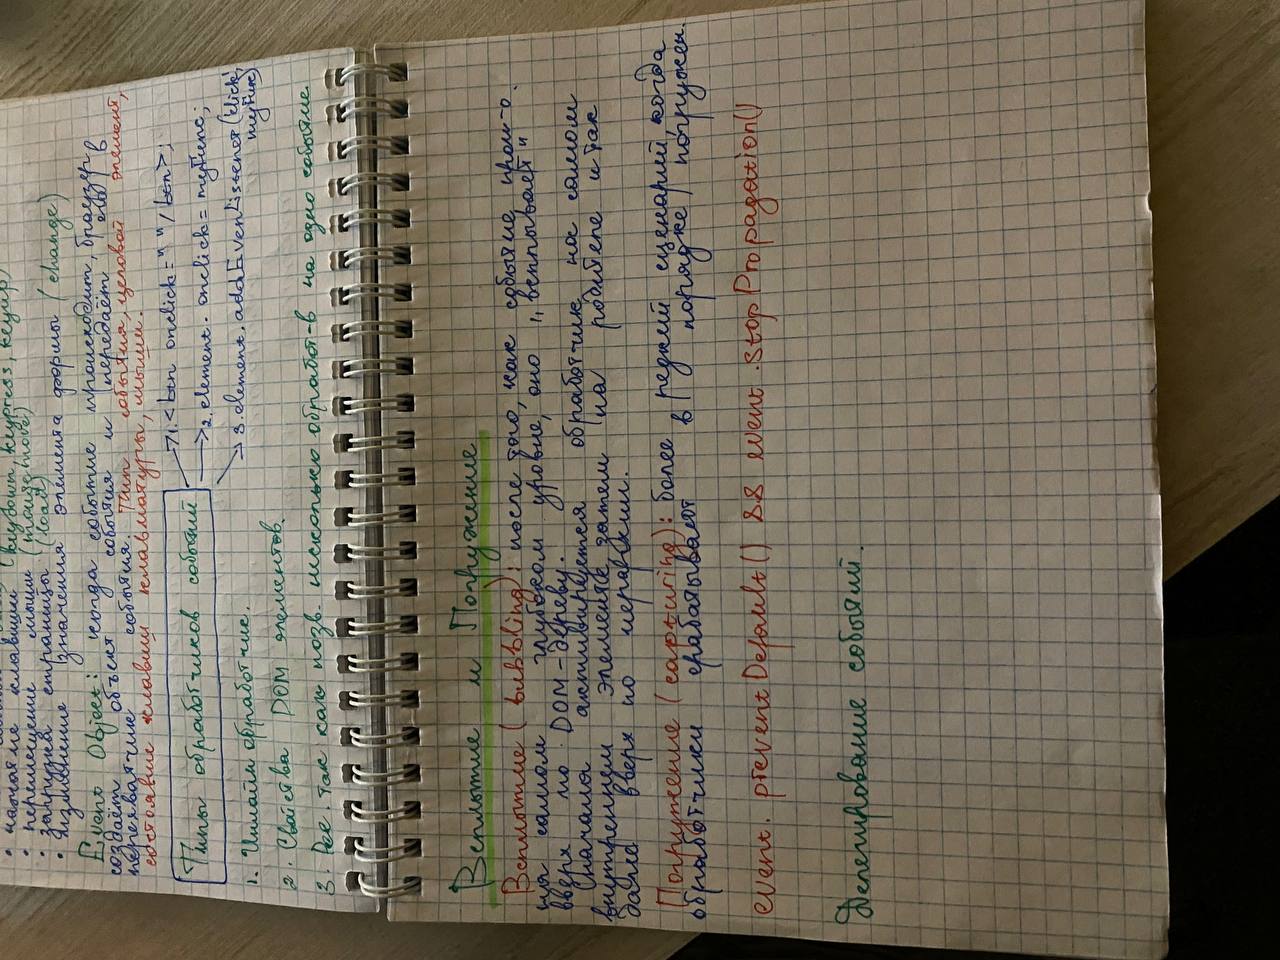 • нажатие клавиши (keydown, keypress, keyup)
• перемещение мыши (mousemove)
• загрузка страницы (load)
• изменение значения элемента формы (change)
Event Object: когда событие происходит, браузер
создаёт объект события и передаёт его в
перехватчик события. Тип события, целовой элемент,
состояние клавиш клавматуры, мыши.
Типы обработчиков событий
1. <btn onclick=" "/btn>;
2. element.onclick = myFunc;
3. element.addEvenListener ('click',
myFunc)
1. Инлайн обработчик.
2. Свойства DOM элементов.
3. так как позв. несколько обработ-в на одно событие.
Всплытие и Погружение
Всплытие (bubbling): после того, как событие прои-о
на самом глубоком уровне, оно „всплывает"
вверх по DOM-дереву.
Сначала активируется обработчик на самом
внутреннем элементе, затем на родителе и так
далее вверх по иерархии.
Погружение (capturing): более редкий сценарий, когда
обработчики срабатывают в порядке погружен.
event.preventDefault() && event.stopPropagation()
Делегирование событий.